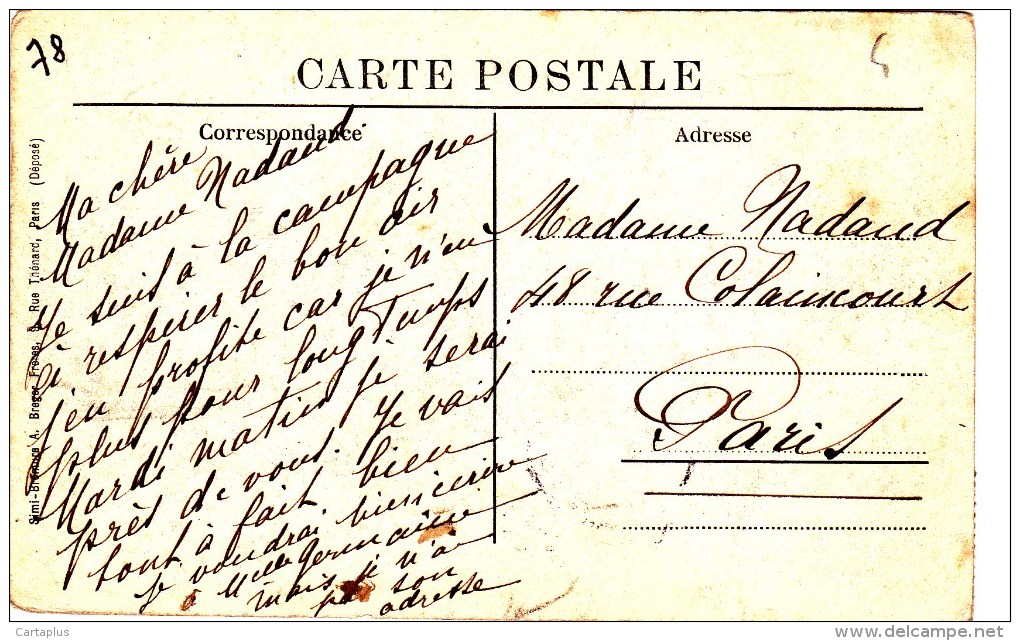 78
CARTE POSTALE
Correspondance
Adresse
Ma chère
Madame Nadaud
Je suis à la campagne
à respirer le bon air
j'en profite car je n'en
plus pour longTemps
Mardi matin je serai
près de vous. Je vais
tout à fait bien
je voudrai bien écrire
à Mlle Germaine
mais je n'ai
pas son
adresse
Madame Nadaud
48 rue Colaincourt
Paris
Simi-Bromure A. Breger Frères, 9, Rue Thénard, Paris (Déposé)
Cartaplus
delcampe.net